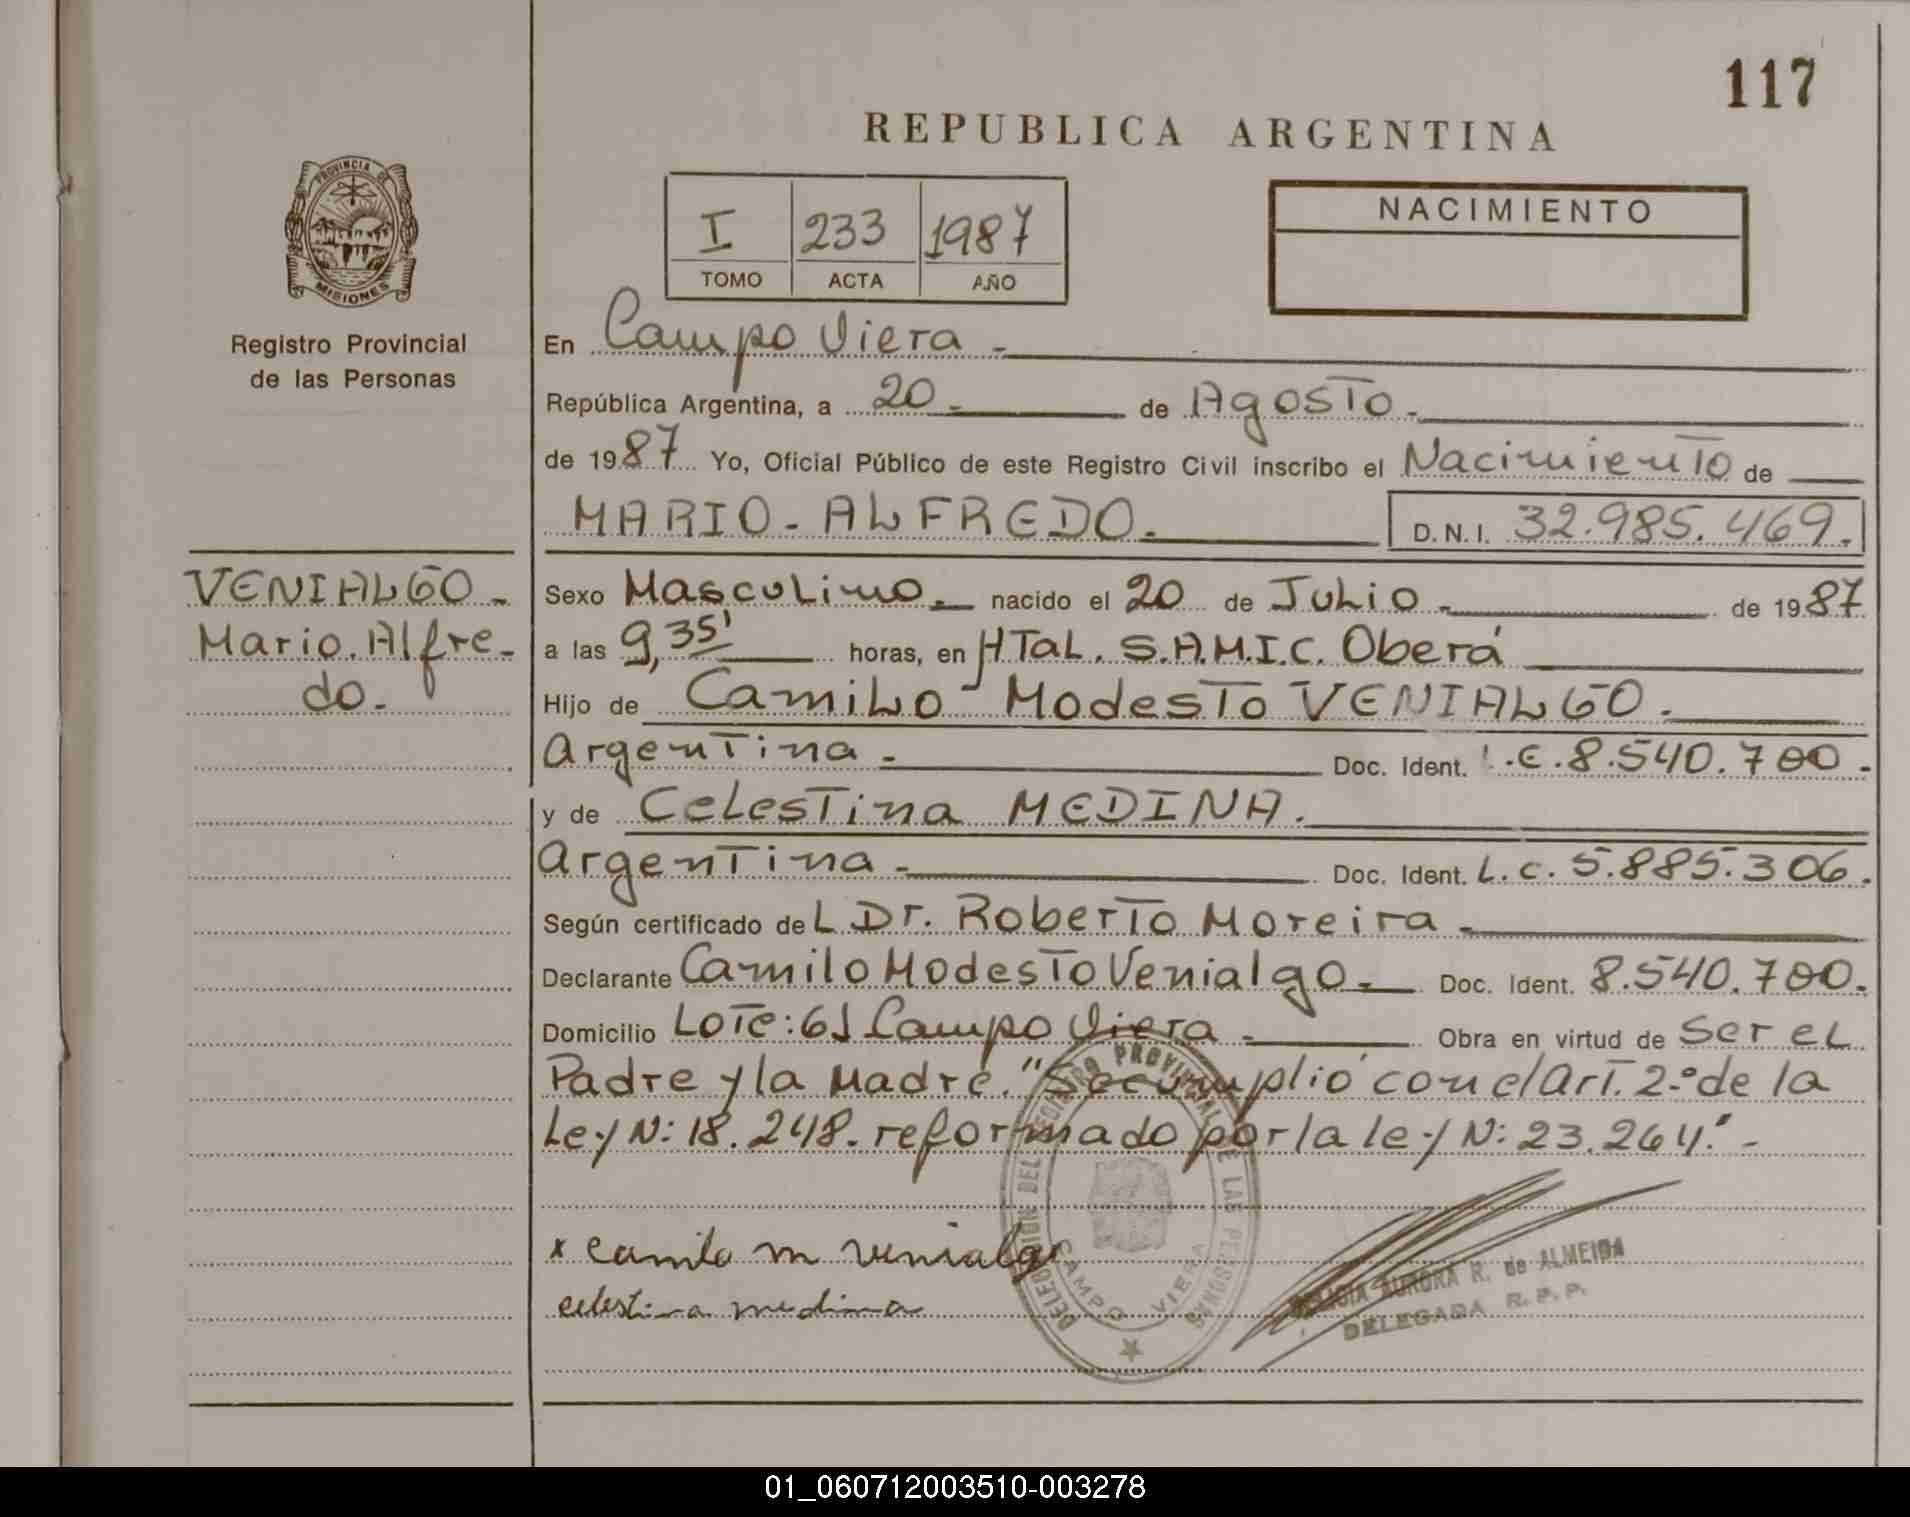 117
REPUBLICA ARGENTINA
PROVINCIA DE
MISIONES
Registro Provincial
de las Personas
I 233 1987
TOMO ACTA AÑO
NACIMIENTO
En Campo Viera -
República Argentina, a 20 - de Agosto.
de 1987 Yo, Oficial Público de este Registro Civil inscribo el Nacimiento de
MARIO - ALFREDO. D.N.I. 32.985.469.
VENIALGO -
Mario. Alfre-
do.
Sexo Masculino. nacido el 20 de Julio - de 1987
a las 9,35' horas, en HTaL. S.A.M.I.C. Oberá
Hijo de Camilo Modesto VENIALGO.
Argentina - Doc. Ident. .E.8.540.700.
y de Celestina MEDINA.
Argentina - Doc. Ident. L.c. 5.885.306.
Según certificado deL Dr. Roberto Moreira -
Declarante Camilo Modesto Venialgo - Doc. Ident. 8.540.700.
Domicilio Lote: 61 Campo Viera - Obra en virtud de Ser eL
Padre y la Madre. "Se cumplió con el Art. 2º de la
Ley N: 18.248. reformado por la ley N: 23.264." -
x camilo m venialgo
celestina medina
DELEGACION DEL REGISTRO PROVINCIAL DE LAS PERSONAS
CAMPO VIERA
AURORA R. de ALMEIDA
DELEGADA R.P.P.
01_060712003510-003278